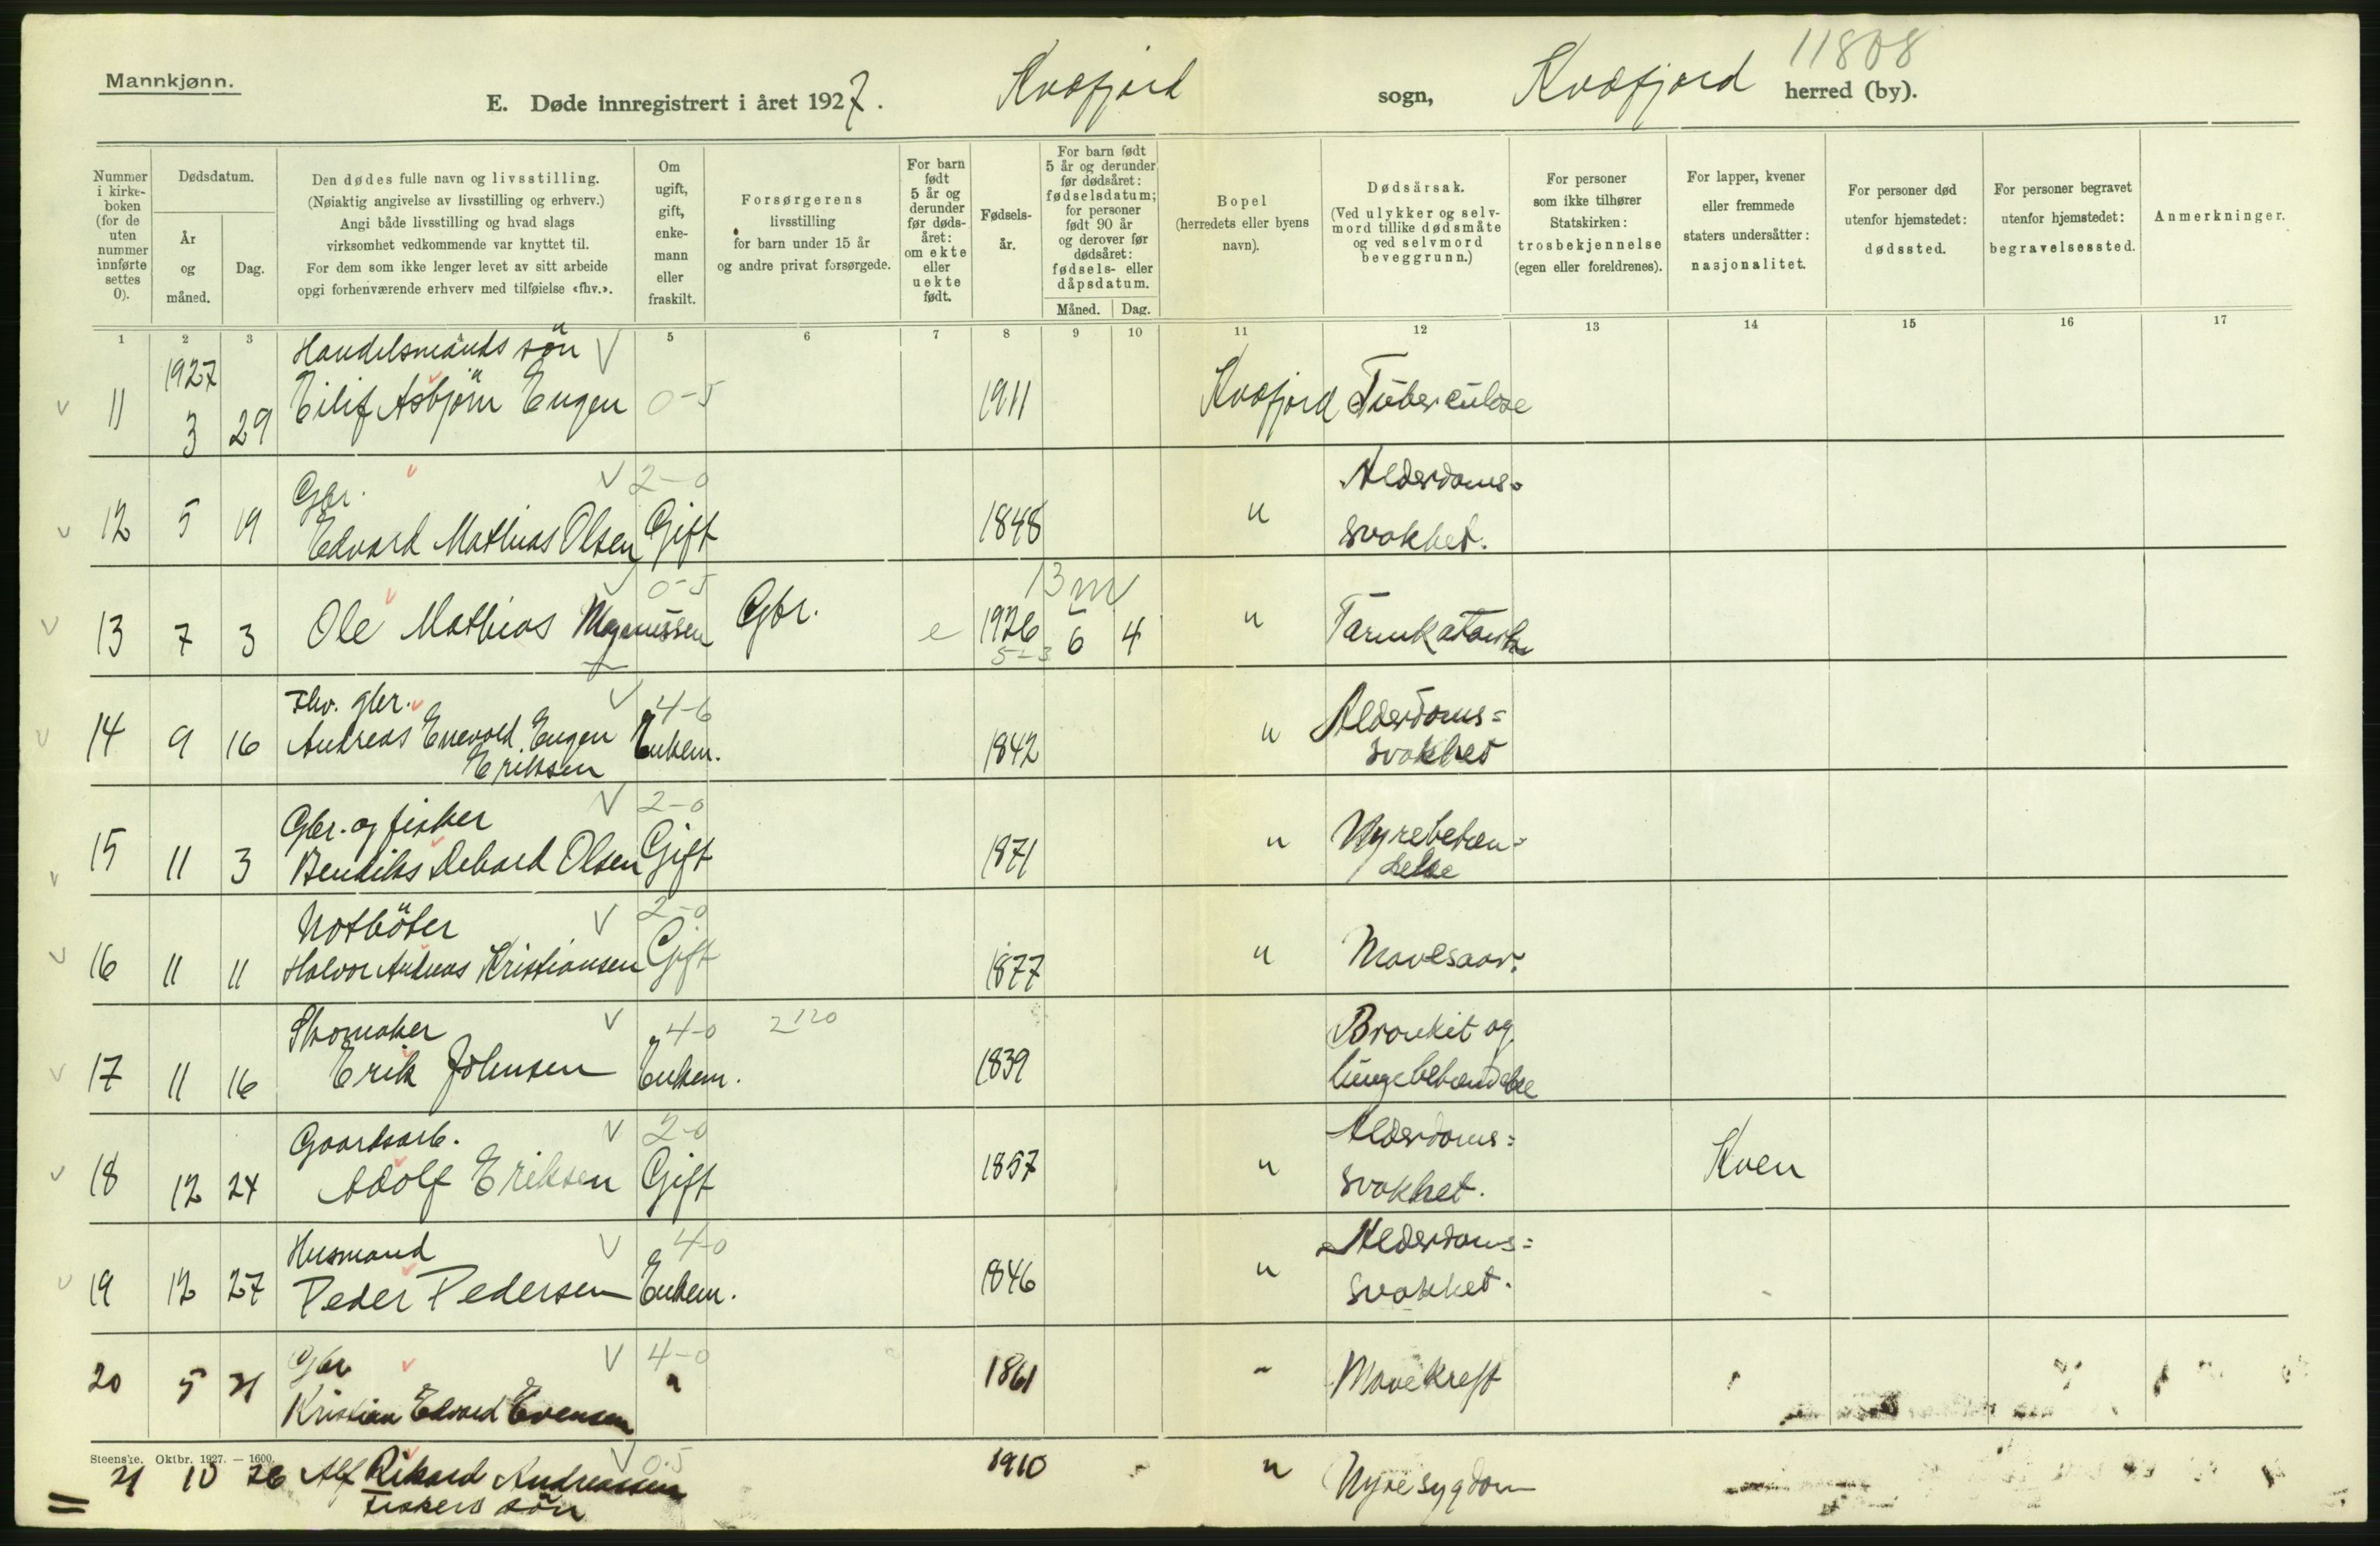 Mannkjønn.
11808
E. Døde innregistrert i året 1927. Kvæfjord sogn, Kvæfjord herred (by).
Nummer i kirke-boken (for de uten nummer innførte settes 0).
Dødsdatum.
År og måned.
Dag.
Den dødes fulle navn og livsstilling.
(Nøiaktig angivelse av livsstilling og erhverv.)
Angi både livsstilling og hvad slags
virksomhet vedkommende var knyttet til.
For dem som ikke lenger levet av sitt arbeide
opgi forhenværende erhverv med tilføielse «fhv.».
Om ugift, gift, enke-mann eller fraskilt.
Forsørgerens
livsstilling
for barn under 15 år
og andre privat forsørgede.
For barn født 5 år og derunder før døds-året: om ekte eller uekte født.
Fødsels-år.
For barn født 5 år og derunder før dødsåret: fødselsdatum; for personer født 90 år og derover før dødsåret: fødsels- eller dåpsdatum.
Måned. Dag.
Bopel
(herredets eller byens
navn).
Dødsårsak.
(Ved ulykker og selv-
mord tillike dødsmåte
og ved selvmord
beveggrunn.)
For personer
som ikke tilhører
Statskirken:
trosbekjennelse
(egen eller foreldrenes).
For lapper, kvener
eller fremmede
staters undersåtter:
nasjonalitet.
For personer død
utenfor hjemstedet:
dødssted.
For personer begravet
utenfor hjemstedet:
begravelsessted.
Anmerkninger.
1 2 3 5 6 7 8 9 10 11 12 13 14 15 16 17
1927 Handelsmands sön
11 3 29 Eilif Asbjörn Eugen 0-5 1911 Kvæfjord Tuberculose
Gbr. 2-0 Alderdoms-
12 5 19 Edvard Mathias Olsen Gift 1848 " svakhet.
0-5 13 m
13 7 3 Ole Mathias Magnussen Gbr. e 1926 6 4 " Tarmkatarrh
5-3
Fhv. gbr. 4-6 Alderdoms=
14 9 16 Andreas Enevold Eugen Enkem. 1842 " svakhet
Eriksen
Gbr. og fisker 2-0 Nyrebeten=
15 11 3 Bendiks Dehard Olsen Gift 1871 " delse
Notböter 2-0
16 11 11 Halvor Andreas Kristiansen Gift 1877 " Mavesaar.
Skomaker 4-0 2120 Bronkit og
17 11 16 Erik Johnsen Enkem. 1839 lungebetændelse
Gaardsarb. 2-0 Alderdoms=
18 12 24 Adolf Eriksen Gift 1857 " svakhet. Kven
Husmand 4-0 Alderdoms=
19 12 27 Peder Pedersen Enkem. 1846 " svakhet.
Gbr 4-0
20 5 21 Kristian Edvard Evensen " 1861 " Mavekreft
Steenske. Oktbr. 1927. — 1600.
21 10 26 Alf Rikard Andreassen 0-5 1910 " Nyresygdom
Fiskers sön